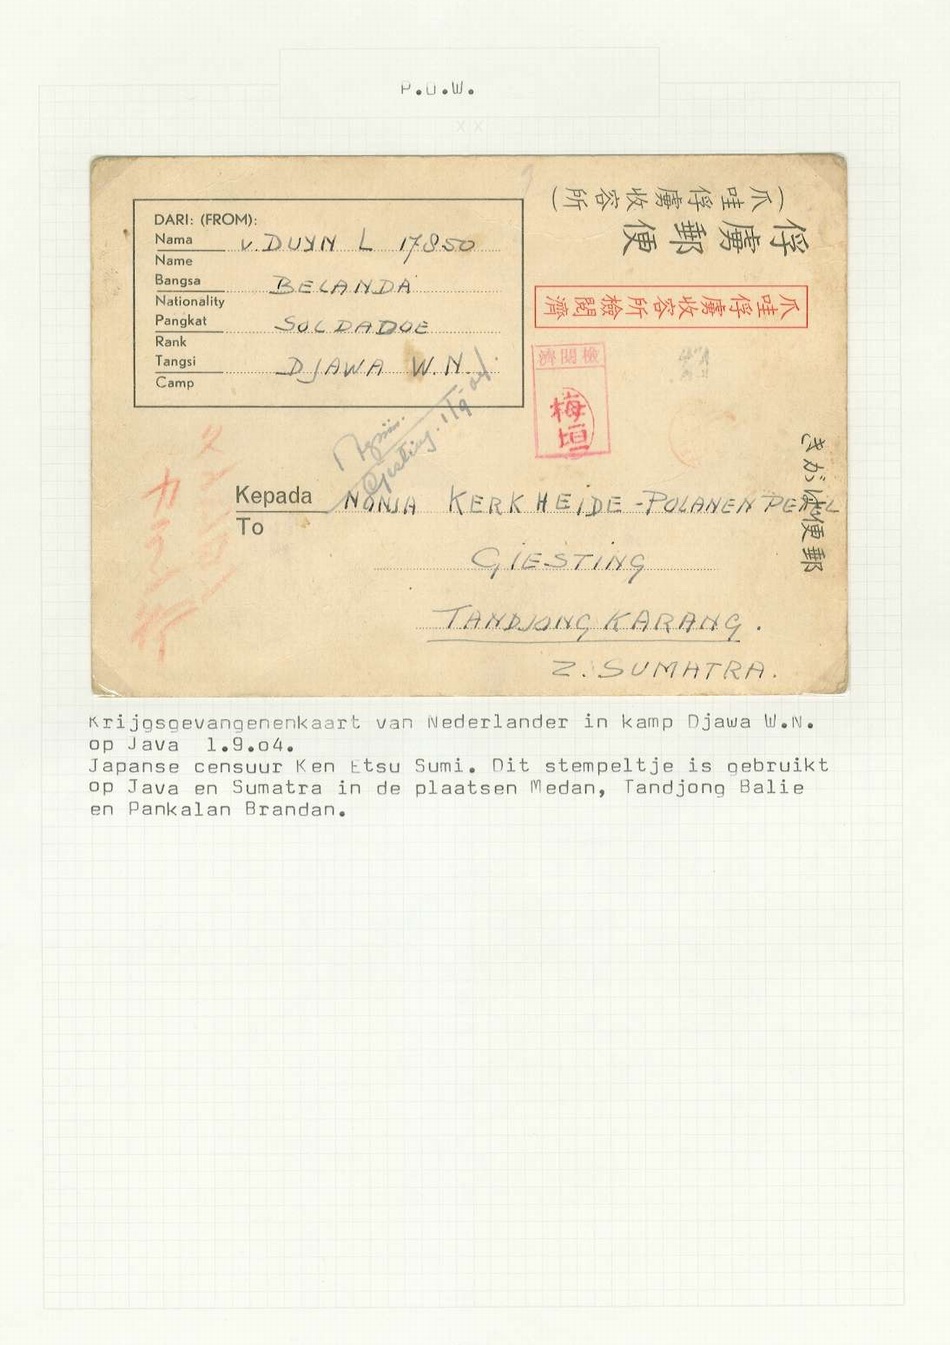 P.O.W.
(爪哇俘虜收容所)
俘虜郵便
DARI: (FROM):
Nama v. DUYN L 17850
Name
Bangsa BELANDA
Nationality
Pangkat SOLDADOE
Rank
Tangsi DJAWA W.N.
Camp
爪哇俘虜收容所檢閲濟
檢閲濟
梅垣
Giesting. 1/9 04
郵便はがき
Kepada NONJA KERKHEIDE-POLANEN PETEL
To
GIESTING
TANDJONG KARANG.
Z. SUMATRA.
Krijgsgevangenenkaart van Nederlander in kamp Djawa W.N.
op Java 1.9.o4.
Japanse censuur Ken Etsu Sumi. Dit stempeltje is gebruikt
op Java en Sumatra in de plaatsen Medan, Tandjong Balie
en Pankalan Brandan.